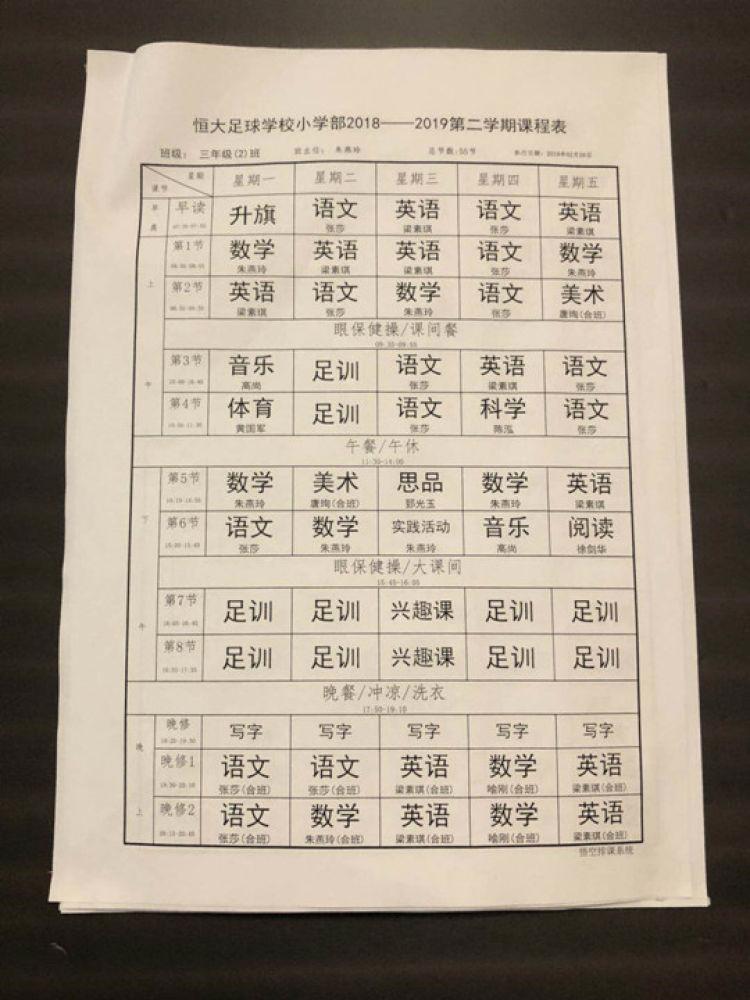 恒大足球学校小学部2018——2019第二学期课程表
班级: 三年级(2)班 班主任: 朱燕玲 总节数:55节
星期 课节 星期一 星期二 星期三 星期四 星期五
早读 升旗 语文 英语 语文 英语
张莎 梁素琪 张莎 梁素琪
第1节 数学 英语 英语 语文 数学
朱燕玲 梁素琪 梁素琪 张莎 朱燕玲
上
第2节 英语 语文 数学 语文 美术
梁素琪 张莎 朱燕玲 张莎 唐珣(合班)
眼保健操/课间餐
09:35-09:55
第3节 音乐 足训 语文 英语 语文
高尚 张莎 梁素琪 张莎
午
第4节 体育 足训 语文 科学 语文
黄国军 张莎 陈泓 张莎
午餐/午休
11:30-14:00
第5节 数学 美术 思品 数学 英语
朱燕玲 唐珣(合班) 郅光玉 朱燕玲 梁素琪
下
第6节 语文 数学 实践活动 音乐 阅读
张莎 朱燕玲 朱燕玲 高尚 徐剑华
眼保健操/大课间
15:45-16:05
第7节 足训 足训 兴趣课 足训 足训
午
第8节 足训 足训 兴趣课 足训 足训
晚餐/冲凉/洗衣
17:50-19:10
晚修 写字 写字 写字 写字 写字
晚
晚修1 语文 语文 英语 数学 英语
张莎(合班) 张莎(合班) 梁素琪(合班) 喻刚(合班) 梁素琪(合班)
上
晚修2 语文 数学 英语 数学 英语
张莎(合班) 朱燕玲(合班) 梁素琪(合班) 喻刚(合班) 梁素琪(合班)
悟空排课系统